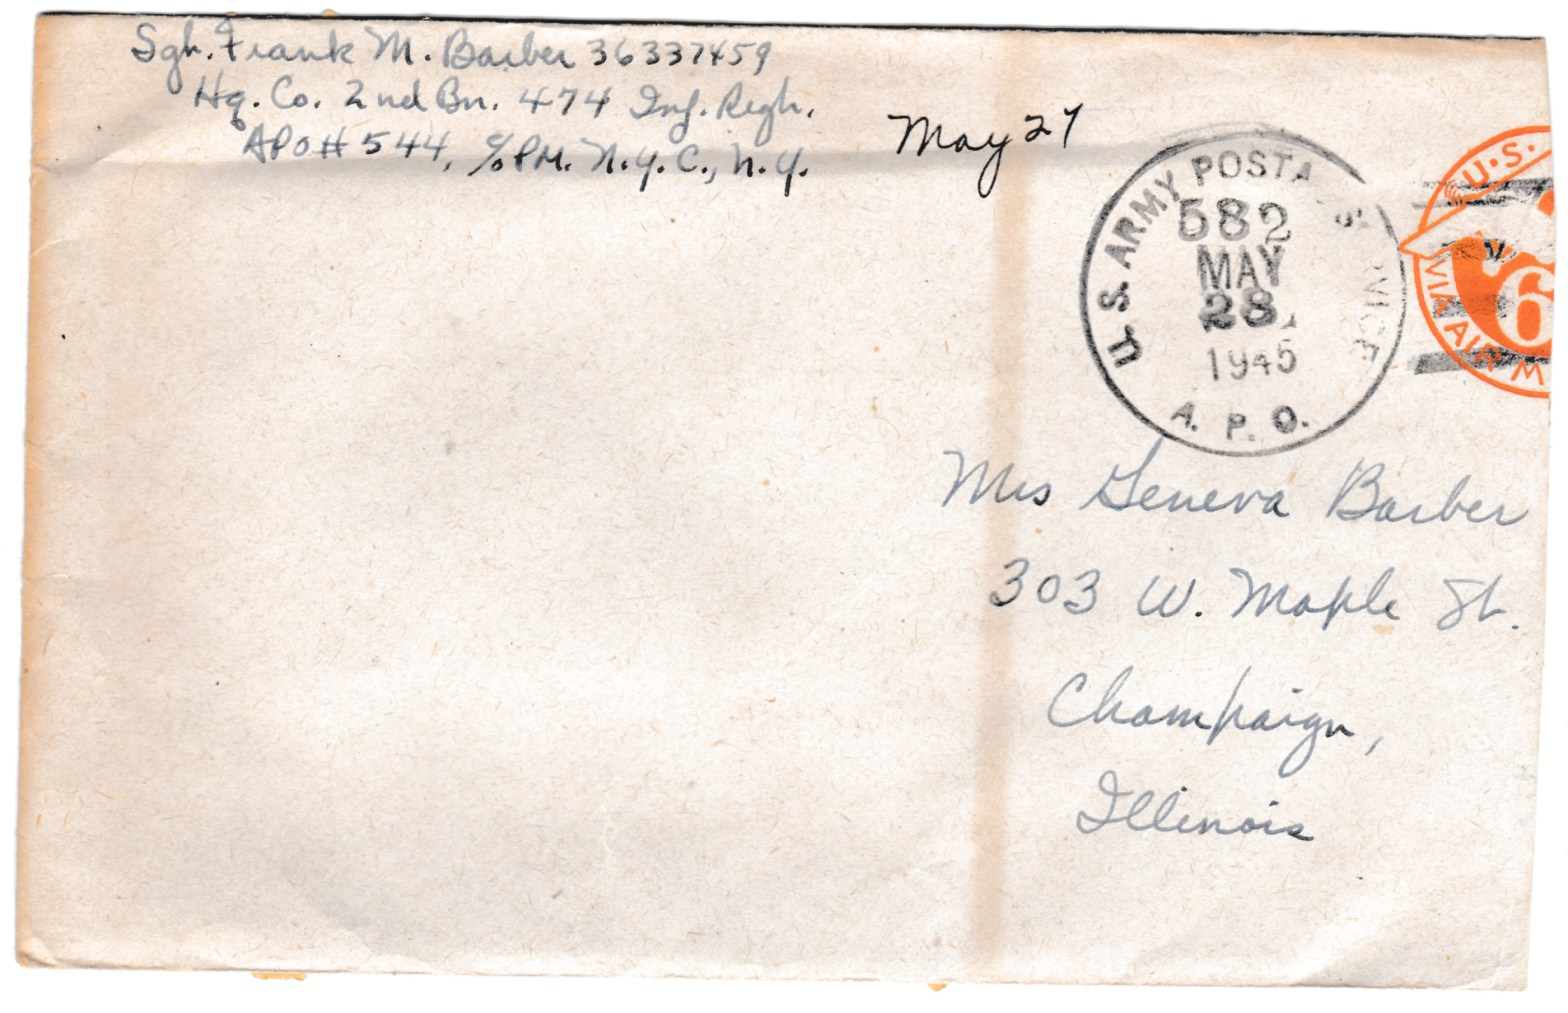 Sgt. Frank M. Barber 36337459
Hq. Co. 2nd Bn. 474 Inf. Regt.
APO# 544, c/o PM. N.Y.C., N.Y.
May 27
U.S. ARMY POSTA S VICE
582
MAY
28
1945
A. P. O.
U.S.
6
VIA AIR M
Mrs Geneva Barber
303 W. Maple St.
Champaign,
Illinois